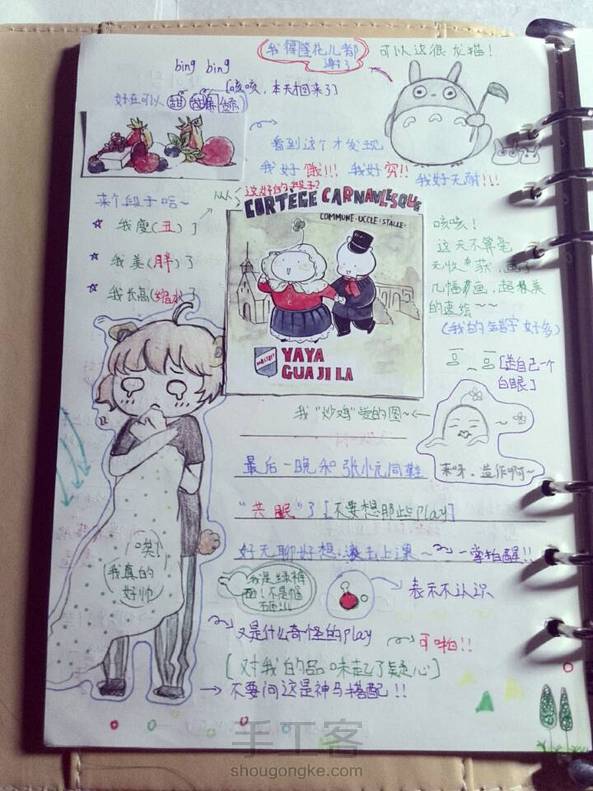 我得隆花儿都谢了
可以这很龙猫！
bing bing
[咳咳，本天回来了]
好在可以甜
看到这个才发现
我好饿!!! 我好穷!!
我好无耐!!!
某个段子啥~
这好好的段子?
☆ 我瘦(丑)了
☆ 我美(胖)了
☆ 我长高(缩水)了
CORTÈGE CARNAVALESQUE
COMMUNE·UCCLE·STALLE
YAYA
GUAJILA
咳咳！
这天不算毫
无收获，画了
几幅画，超林美
的速绘~~
(我的错字好多)
[送自己一个
白眼]
我"炒鸡"爱的图~
来呀，造作啊~
最后一晚和张小元同
"共眠"了[不要想那些play]
好天聊好想，凑去上课~~一掌拍醒!!
噗！
我真的
好帅
表示不认识
又是什么奇怪的play
可啪!!
[对我的品味起了疑心]
不要问这是神马搭配!!
手工客
shougongke.com